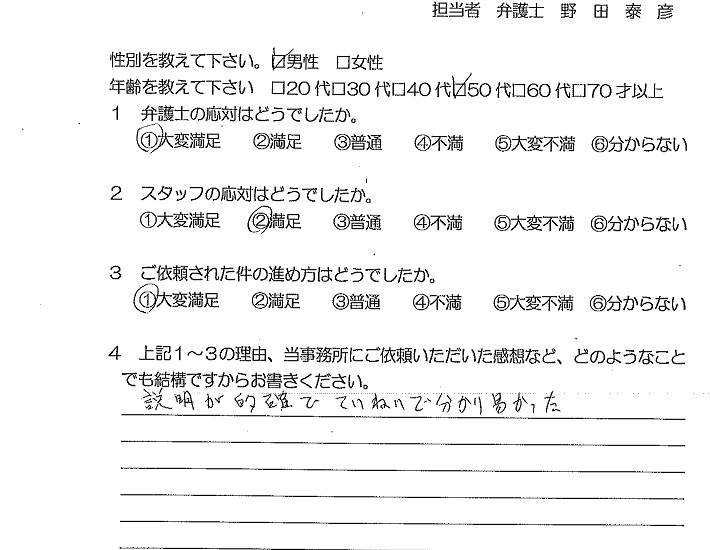 担当者 弁護士 野 田 泰 彦
性別を教えて下さい。☑男性 □女性
年齢を教えて下さい □20代□30代□40代☑50代□60代□70才以上
1 弁護士の応対はどうでしたか。
①大変満足 ②満足 ③普通 ④不満 ⑤大変不満 ⑥分からない
2 スタッフの応対はどうでしたか。
①大変満足 ②満足 ③普通 ④不満 ⑤大変不満 ⑥分からない
3 ご依頼された件の進め方はどうでしたか。
①大変満足 ②満足 ③普通 ④不満 ⑤大変不満 ⑥分からない
4 上記1~3の理由、当事務所にご依頼いただいた感想など、どのようなこと
でも結構ですからお書きください。
説明が的確で ていねいで分かり易かった